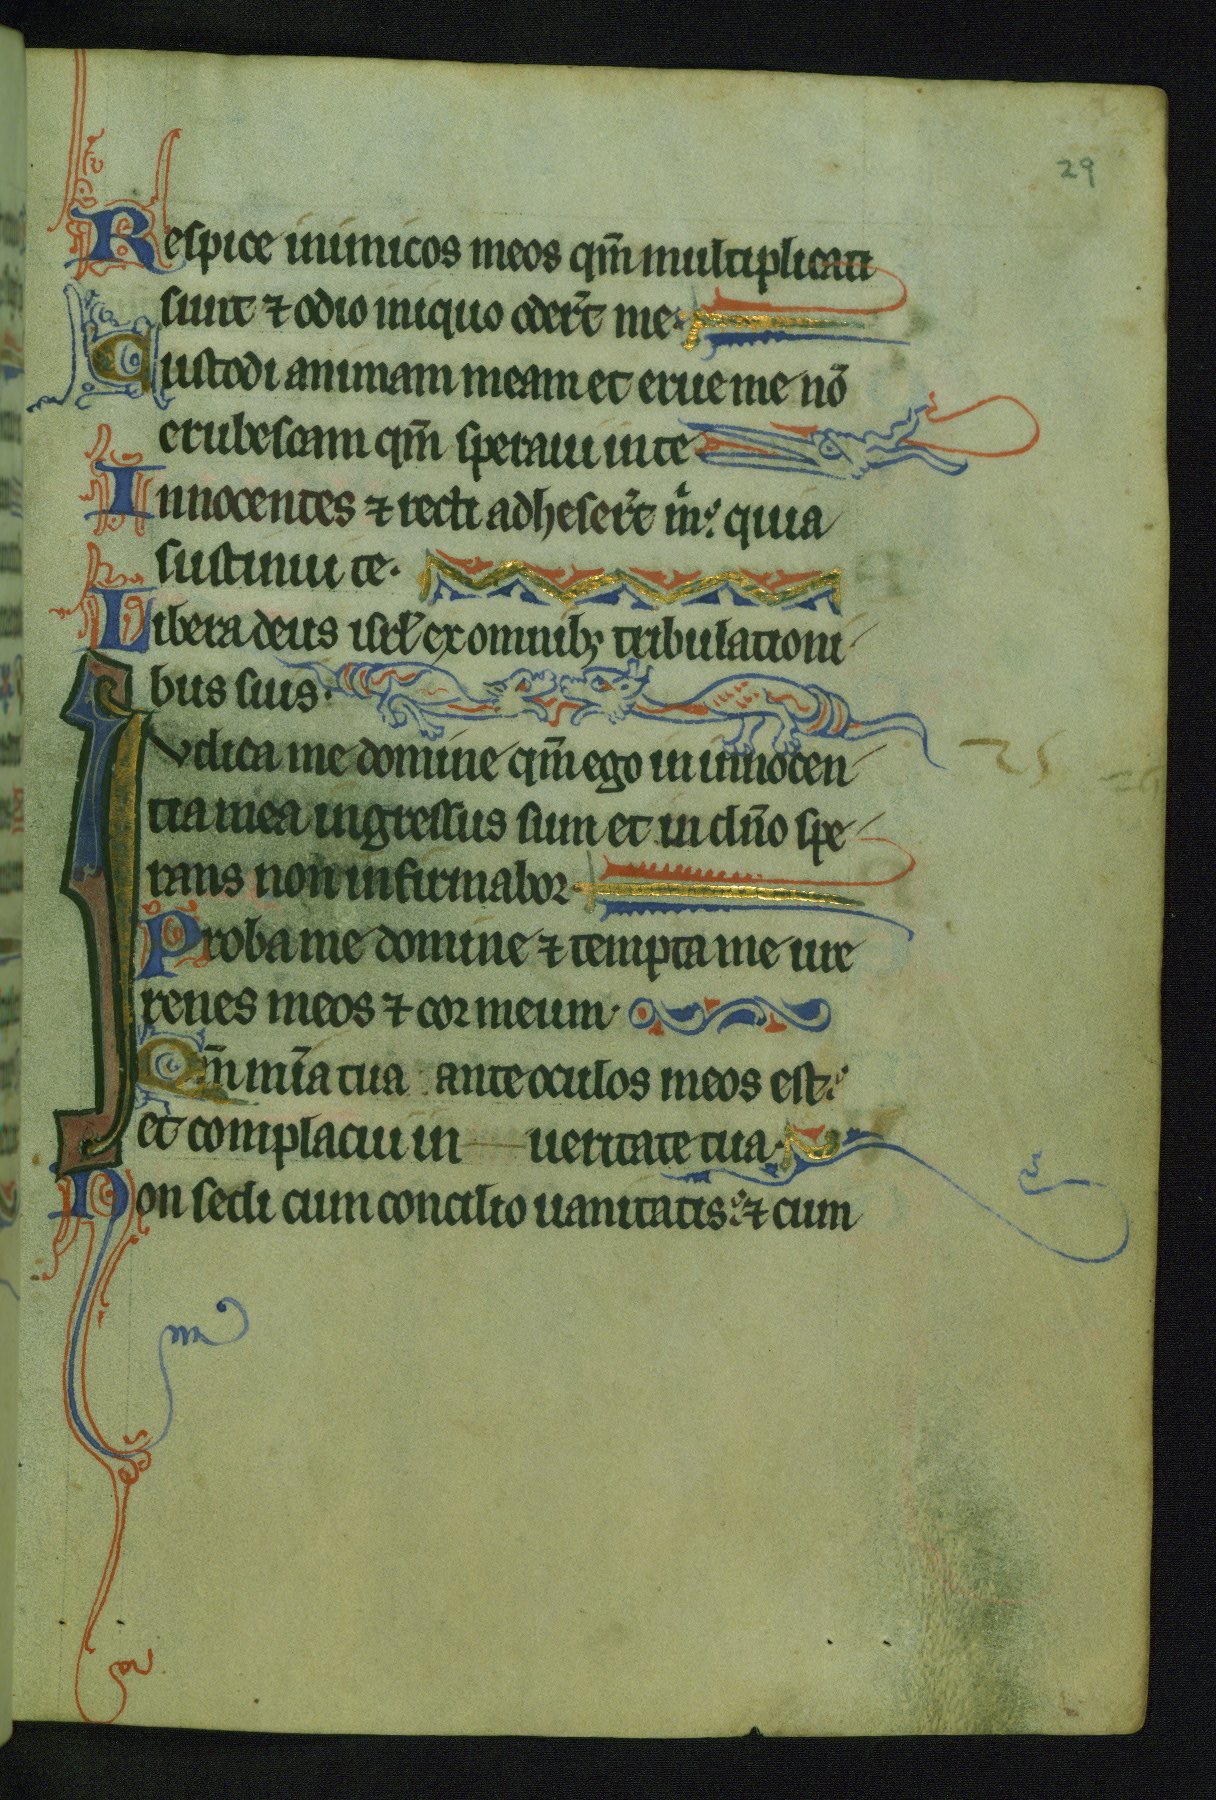 29
Respice inimicos meos qm̄ multiplicati
sunt ⁊ odio iniquo oder̄t me·
Custodi animam meam et erue me nō
erubescam qm̄ speraui in te
Innocentes ⁊ recti adheser̄t m̄i quia
sustinui te·
Libera deus isrl̄ ex omnib; tribulationi
bus suis·
Iudica me domine qm̄ ego in innocen
tia mea ingressus sum et in dn̄o spe
rans non infirmabor·
25
Proba me domine ⁊ tempta me ure
renes meos ⁊ cor meum·
Qm̄ mīa tua ante oculos meos est
et complacui in ueritate tua·
Non sedi cum concilio uanitatis ⁊ cum